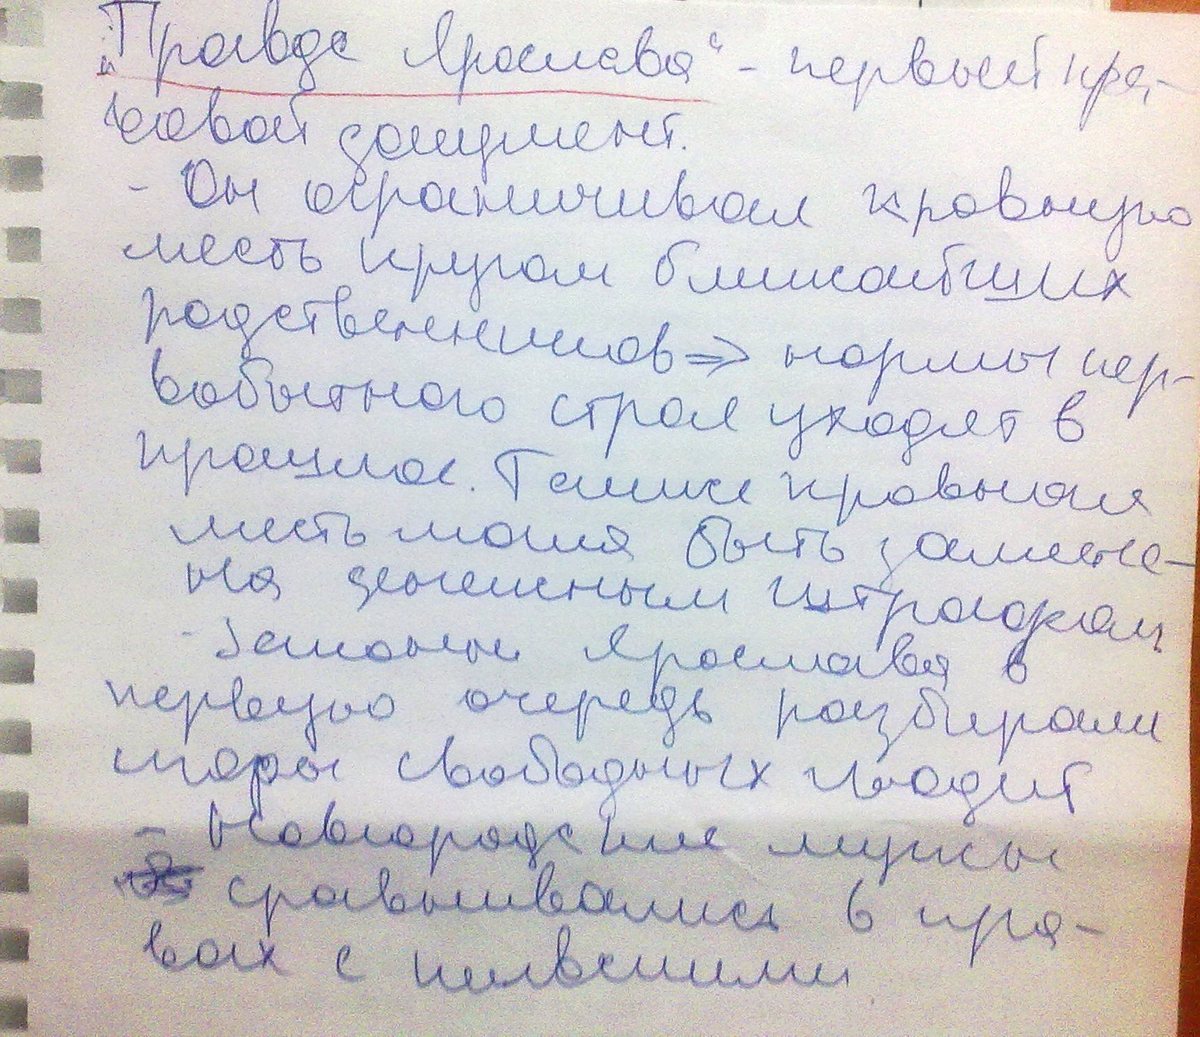 "Правда Ярослава" - первый пра-
вовой документ.
- Он ограничивал кровную
месть кругом ближайших
родственников => нормы пер-
вобытного строя уходят в
прошлое. Также кровная
месть могла быть замене-
на денежным штрафом,
- Законы Ярослава в
первую очередь разбирали
споры свободных людей
- Новгородские мужи
сравнивались в пра-
вах с киевскими